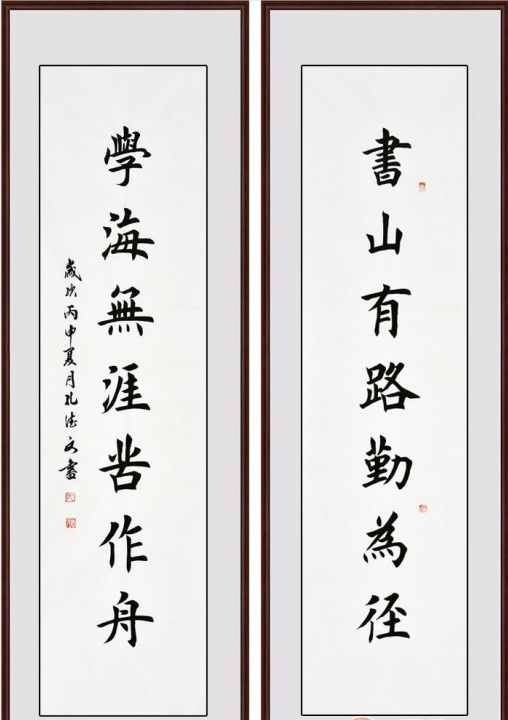 書山有路勤為徑
學海無涯苦作舟
歲次丙申夏月孔德文書